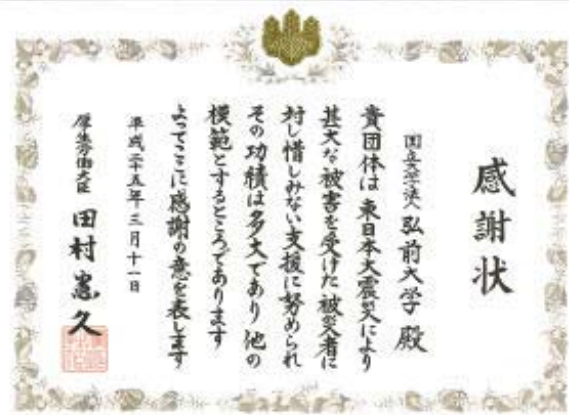 感謝状
国立大学法人 弘前大学 殿
貴団体は東日本大震災により
甚大な被害を受けた被災者に
対し惜しみない支援に努められ
その功績は多大であり他の
模範とするところであります
よってここに感謝の意を表します
平成二十五年三月十一日
厚生労働大臣 田村憲久